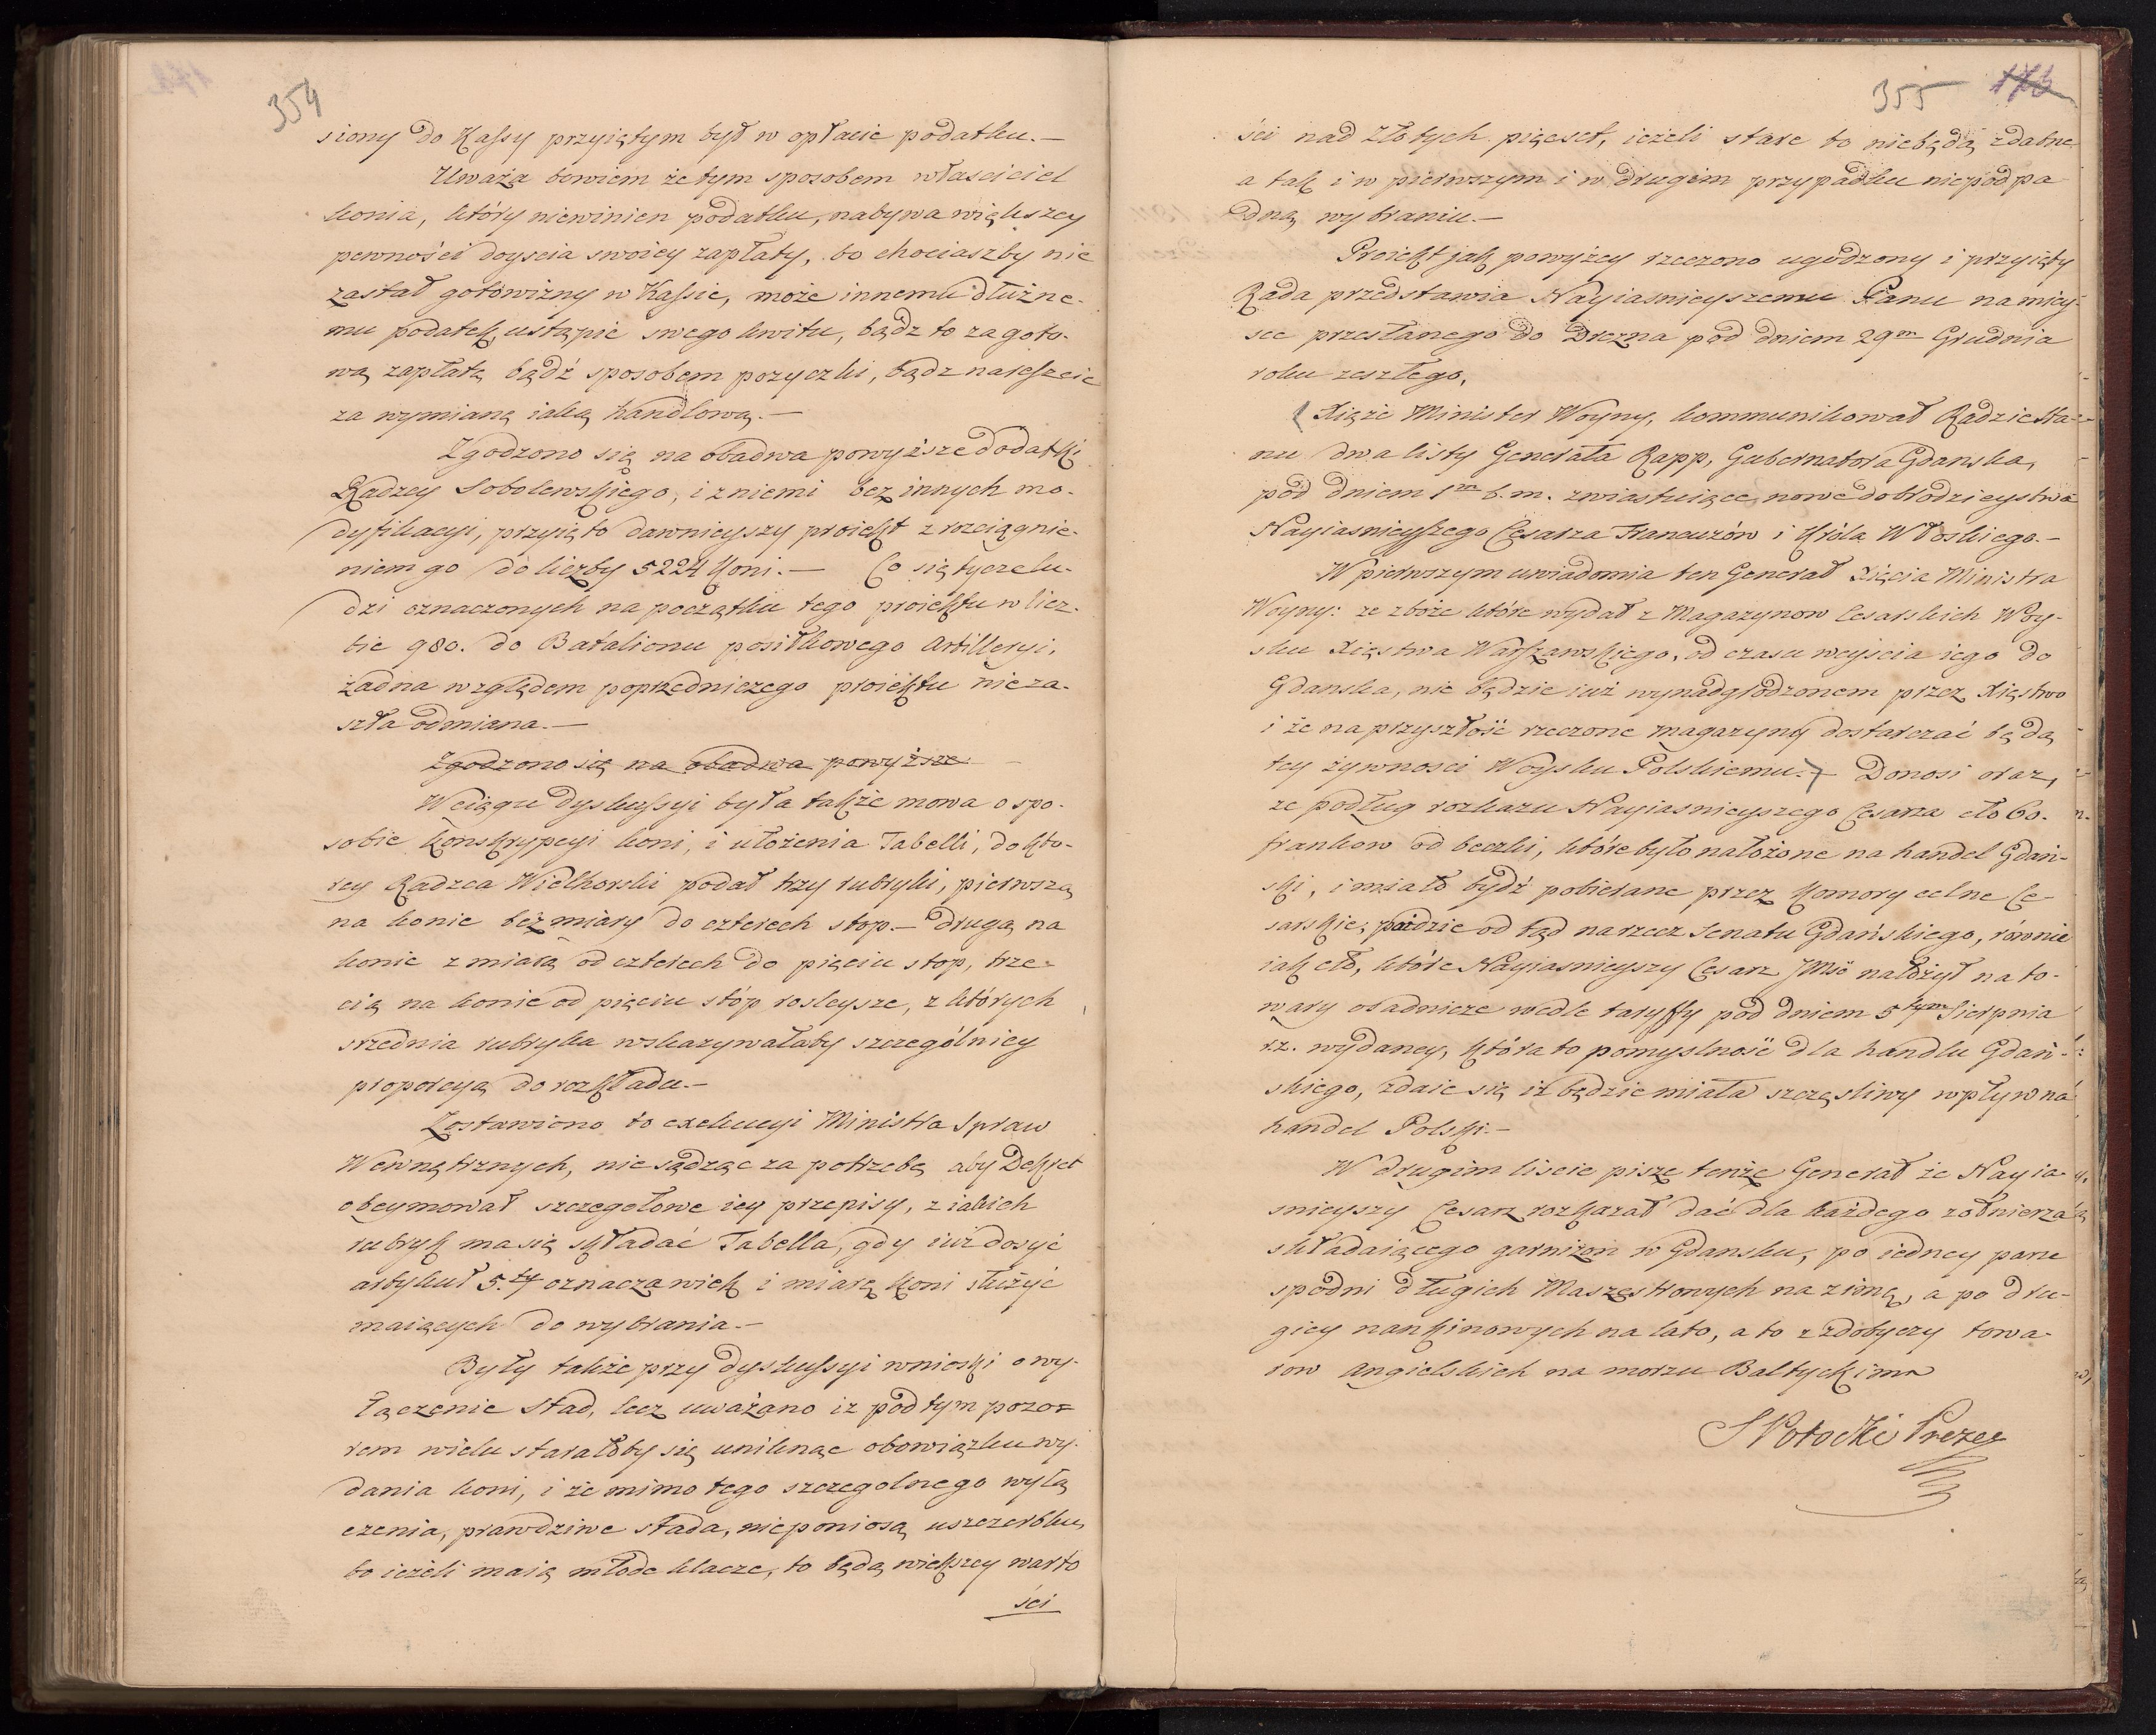 354
siony do Kassy przyiętym był w opłacie podatku.—
Uważa bowiem że tym sposobem własciciel
konia, który niewinien podatku, nabywa większey
pewności doyscia swoiey zapłaty, bo chociaszby nie
zastał gotowizny w Kassie, może innemu dłużne-
mu podatek, ustąpic swego kwitu, bądz to za goto-
wą zapłatą bądź sposobem pozyczki, bądz nareszcie
za wymianą iaką handlową.—
Zgodzono się na obadwa powyższe dodatki
Radzcy Sobolewskiego, i z niemi bez innych mo-
dyfikacyi, przyięto dawnieyszy proiekt z rozciągnie-
niem go do liczby 5224 koni.— Co się tycze lu-
dzi oznaczonych na początku tego proiektu w licz-
bie 980. do Batalionu posiłkowego Artilleryi,
żadna względem poprzedniczego proiektu nie za-
szła odmiana.—
Zgodzono się na obadwa powyższe
W ciągu dyskussyi była także mowa o spo-
sobie konskrypcyi koni, i ułożenia Tabelli, do któ-
rey Radzca Wielhorski podał trzy rubryki, pierwszą
na konie bez miary do czterech stop.— drugą na
konie z miarą od czterech do pięciu stop, trze-
cią na konie od pięciu stóp rosleysze, z których
srzednia rubryka wskazywałaby szczególniey
proporcyą do rozkładu.—
Zostawiono to exekucyi Ministra Spraw
Wewnętrznych, nie sądząc za potrzebę aby Dekret
obeymował szczegołowe iey przepisy, z iakich
rubryk ma się składać Tabella, gdy iuż dosyć
artykuł 5.ty oznacza wiek i miarę koni służyć
maiących do wybrania.—
Były także przy dyskussyi wnioski o wy-
łączenie Stad, lecz uważano iz pod tym pozo-
rem wielu starałoby się uniknąc obowiązku wy-
dania koni, i że mimo tego szczegolnego wyłą
czenia, prawdziwe stada, nie poniosą uszczerbku,
bo ieżeli maią młode klacze, to będą większey warto
ści
355 173
ści nad złotych pięcset, ieżeli stare to niebędą zdatne
a tak i w pierwszym i w drugim przypadku niepodpa
dną wybraniu.—
Proiekt jak powyżey rzeczono ugodzony i przyięty
Rada przedstawia Nayiasnieyszemu Panu na miey-
sce przesłanego do Drezna pod dniem 29m Grudnia
roku zeszłego.
Xiąże Minister Woyny, kommunikował Radzie Sta-
nu dwa listy Generała Rapp, Gubernatora Gdanska,
pod dniem 1m b. m. zwiastuiące nowe dobrodzieystwa
Nayiasnieyszego Cesarza Francuzów i Króla Włoskiego.—
W pierwszym uwiadomia ten Generał Xięcia Ministra
Woyny: ze zboże które wydał z Magazynow Cesarskich Woy-
sku Xięstwa Warszawskiego, od czasu weyscia iego do
Gdanska, nie będzie iuż wynadgrodzonem przez Xięstwo
i że na przyszłość rzeczone magazyny dostarczać będą
tey żywnosci Woysku Polskiemu.— Donosi oraz,
ze podług rozkazu Nayiasnieyszego Cesarza cło 60.
frankow od beczki, które było nałożone na handel Gdań-
ski, i miało bydź pobierane przez Komory celne Ce-
sarskie; póidzie od tąd na rzecz Senatu Gdańskiego, równie
iak cło, które Nayiasnieyszy Cesarz Jmść nałożył na to-
wary osadnicze wedle taryffy pod dniem 5tym Sierpnia
r.z. wydaney, która to pomyslność dla handlu Gdań-
skiego, zdaie się iż będzie miała szczęsliwy wpływ na
handel Polski.—
W drugim liscie pisze tenże Generał że Nayia-
snieyszy Cesarz rozkazał dać dla każdego zołnierza
składaiącego garnizon w Gdansku, po iedney parze
spodni długich Maszestrowych na zimę, a po dru-
giey nankinowych na lato, a to z zdobyczy towa-
row Angielskich na morzu Baltyckim
S Potocki Prezes